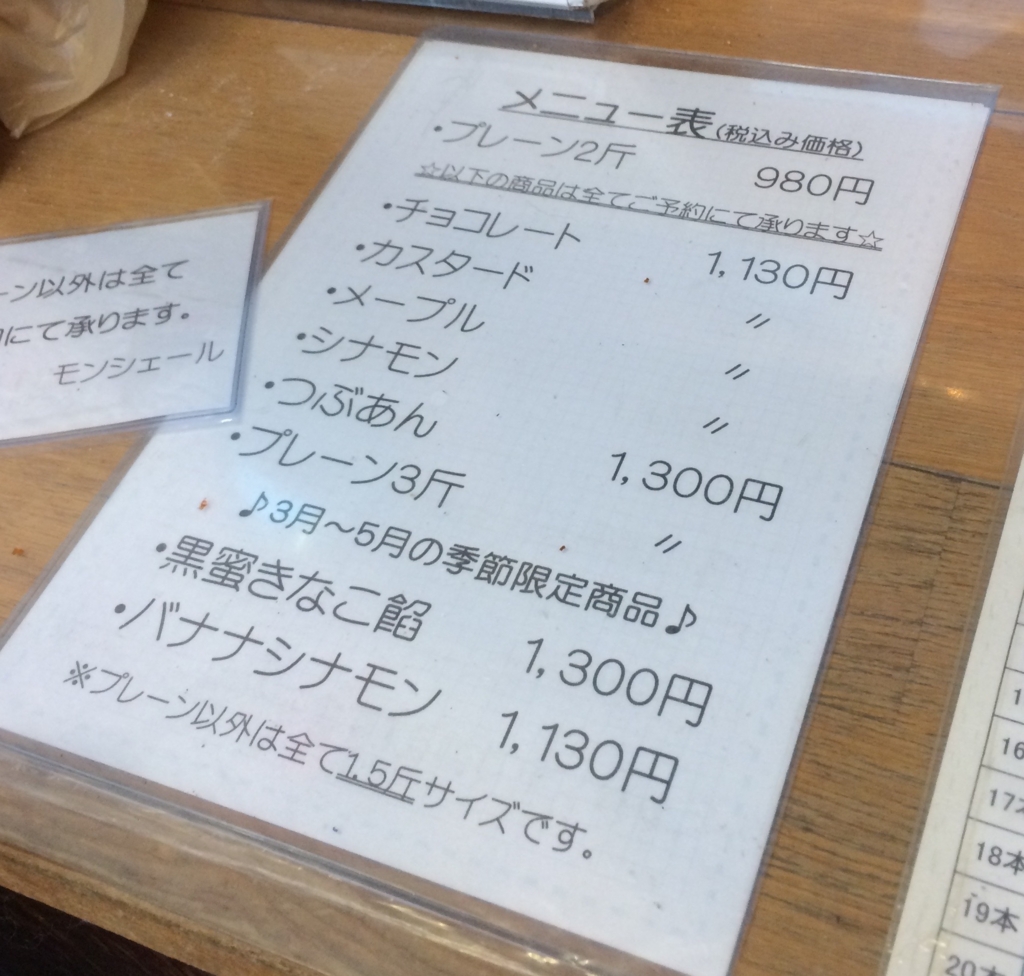 メニュー表(税込み価格)
・プレーン2斤 980円
☆以下の商品は全てご予約にて承ります☆
・チョコレート 1,130円
・カスタード 〃
・メープル 〃
・シナモン 〃
・つぶあん 1,300円
・プレーン3斤 〃
♪3月～5月の季節限定商品♪
・黒蜜きなこ餡 1,300円
・バナナシナモン 1,130円
※プレーン以外は全て1.5斤サイズです。
ーン以外は全て
にて承ります。
モンシェール
16
17本
18本
19本
20本